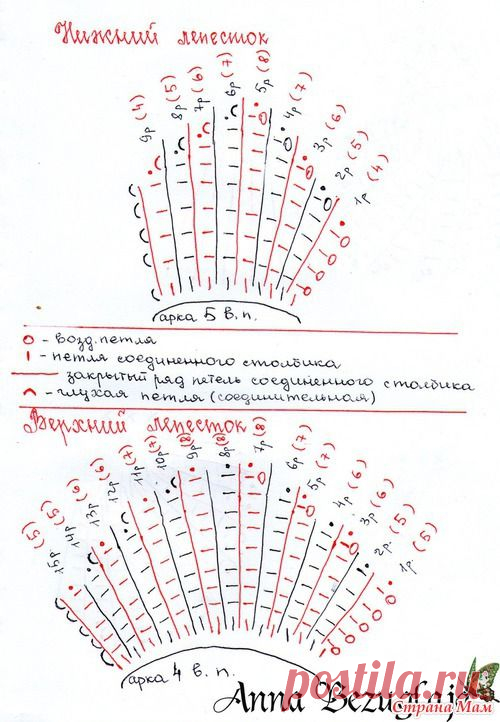 Нижний лепесток
9р (4)
8р (5)
7р (6)
6р (7)
5р (8)
4р (7)
3р (6)
2р (5)
1р (4)
арка 5 в. п.
- возд. петля
- петля соединенного столбика
закрытый ряд петель соединенного столбика
- глухая петля (соединительная)
Верхний лепесток
15р (5)
14р (5)
13р (6)
12р (6)
11р (7)
10р (7)
9р (8)
8р (8)
7р (8)
6р (7)
5р (7)
4р (6)
3р (6)
2р. (5)
1р. (5)
арка 4 в. п.
Anna Bezuglaja
postila.ru
Страна Мам